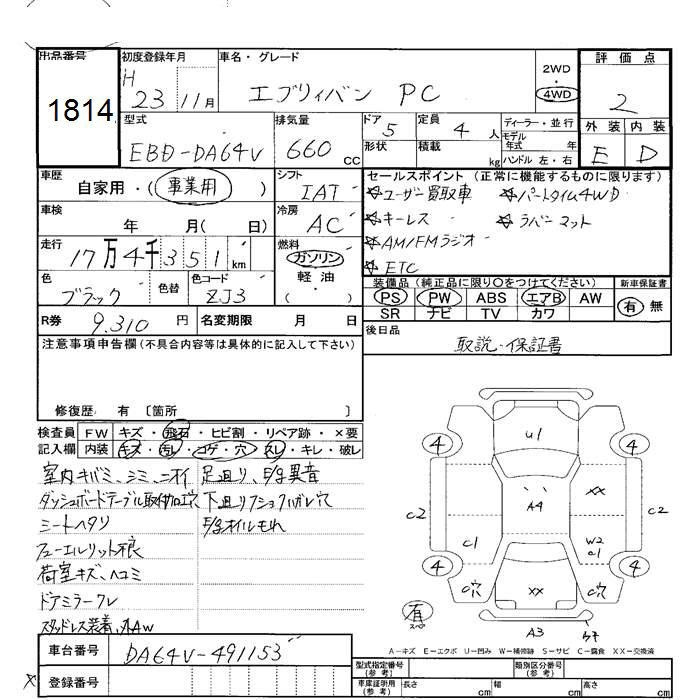 出品番号 初度登録年月 車名・グレード 評価点
1814 H 23 11月 エブリィバン PC 2WD・4WD 2
型式 排気量 ドア 定員 ディーラー・並行 外装 内装
EBD-DA64V 660 cc 5 4 人 モデル年式 年 E D
形状 積載 kg ハンドル 左・右
車歴 シフト セールスポイント (正常に機能するものに限ります)
自家用・(事業用) IAT ☆ユーザー買取車 ☆パートタイム4WD
車検 年 月( 日) 冷房 AC ☆キーレス ☆ラバーマット
走行 17万4千351km 燃料 ガソリン 軽油 ( ) ☆AM/FMラジオ
☆ETC
色 ブラック 色替 色コード ZJ3 装備品 (純正品に限り○をつけてください) 新車保証書
PS PW ABS エアB AW 有 無
SR ナビ TV カワ
R券 9.310 円 名変期限 月 日 後日品
取説・保証書
注意事項申告欄(不具合内容等は具体的に記入して下さい)
修復歴 有 〔箇所 〕
検査員 FW キズ・飛石・ヒビ割・リペア跡・×要
記入欄 内装 キズ・汚レ・コゲ・穴・スレ・キレ・破レ
室内キバミ、シミ、ニオイ 足廻り、F/g異音
ダッシュボードテーブル取付加工穴 下廻り
シートヘタリ F/gオイルもれ
フューエルリット不良
荷室キズ、ヘコミ
ドアミラークレ
スタッドレス装着、外AW
4 U1 4
C2 C1 A4 XX W2 C2
4 C穴 XX C穴 4
有 スペア A3
A-キズ E-エクボ U-凹み W-補修跡 S-サビ C-腐食 XX-交換済
車台番号 DA64V-491153
登録番号
型式指定番号(参考) 類別区分番号(参考)
車庫証明用(参考) 長さ cm 幅 cm 高さ cm